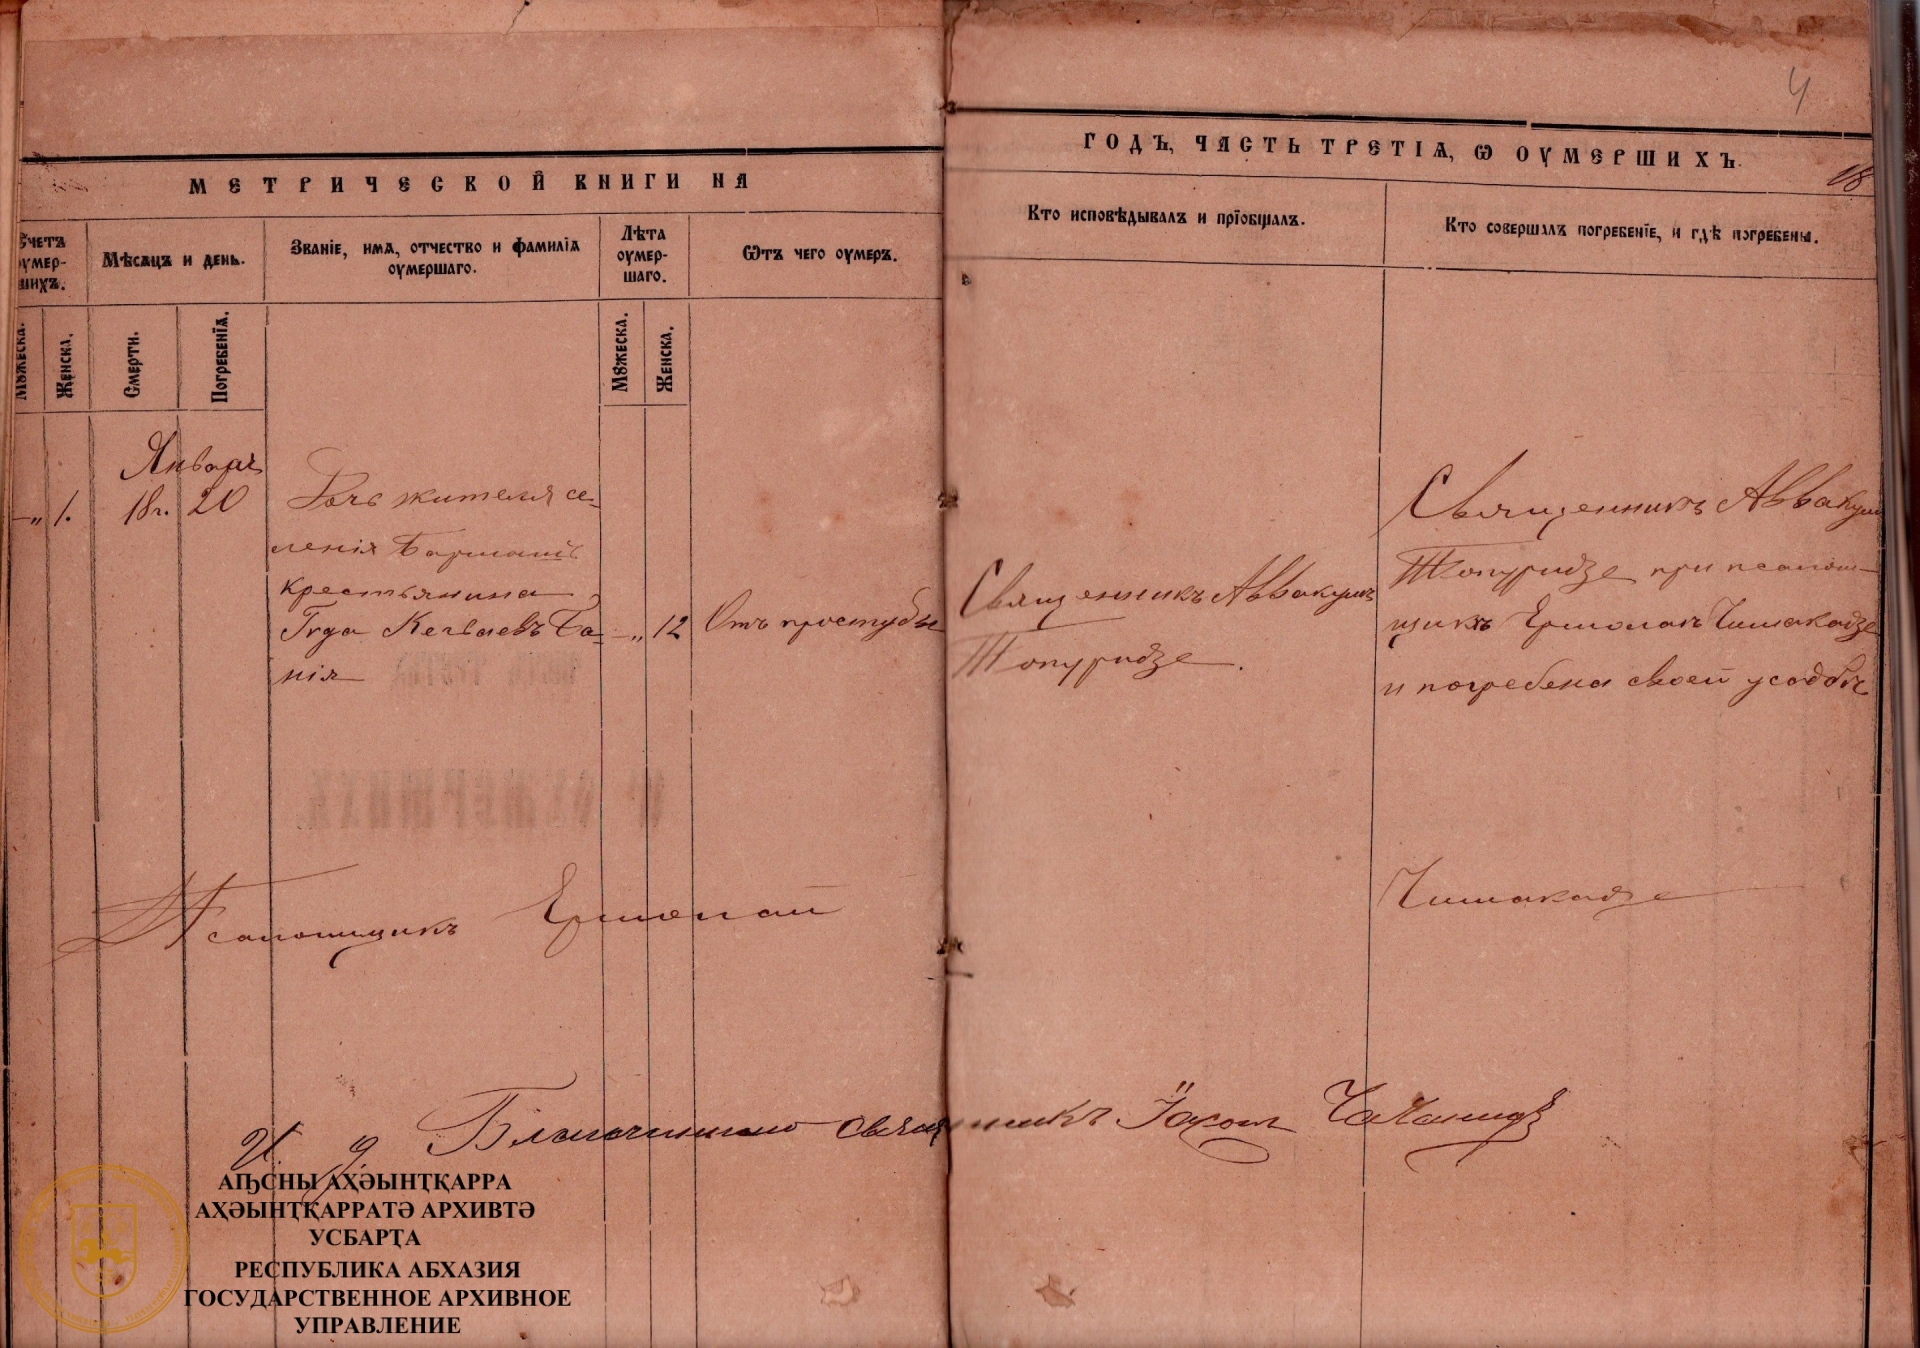 4
МЕТРИЧЕСКОЙ КНИГИ НА
ГОДЪ, ЧАСТЬ ТРЕТІѦ, Ѡ ОУМЕРШИХЪ.
18
Счетъ оумер-шихъ.
Мѣсѧцъ и день.
Званіе, имѧ, отчество и фамиліѧ
оумершаго.
Лѣта
оумер-
шаго.
Ѿтъ чего оумеръ.
Кто исповѣдывалъ и пріобщалъ.
Кто совершалъ погребеніе, и гдѣ погребены.
Мꙋжеска.
Женска.
Смерти.
Погребеніѧ.
Мꙋжеска.
Женска.
Январь
18 20
—„ 1.
Дочь жителя се-
ленія
крестьянина
Гида Ба-
нія
—„ 12
Отъ простуды
Священникъ Аввакумъ
Топуридзе.
Священникъ Аввакумъ
Топуридзе при псаломъ-
щикѣ Ермолаѣ Чишакадзе
и погребена своей усадьбѣ
Псаломщикъ Ермолай Чишакадзе
И. д. Благочиннаго священникъ
АԤСНЫ АҲӘЫНҬҚАРРА
АҲӘЫНҬҚАРРАТӘ АРХИВТӘ
УСБАРҬА
РЕСПУБЛИКА АБХАЗИЯ
ГОСУДАРСТВЕННОЕ АРХИВНОЕ
УПРАВЛЕНИЕ